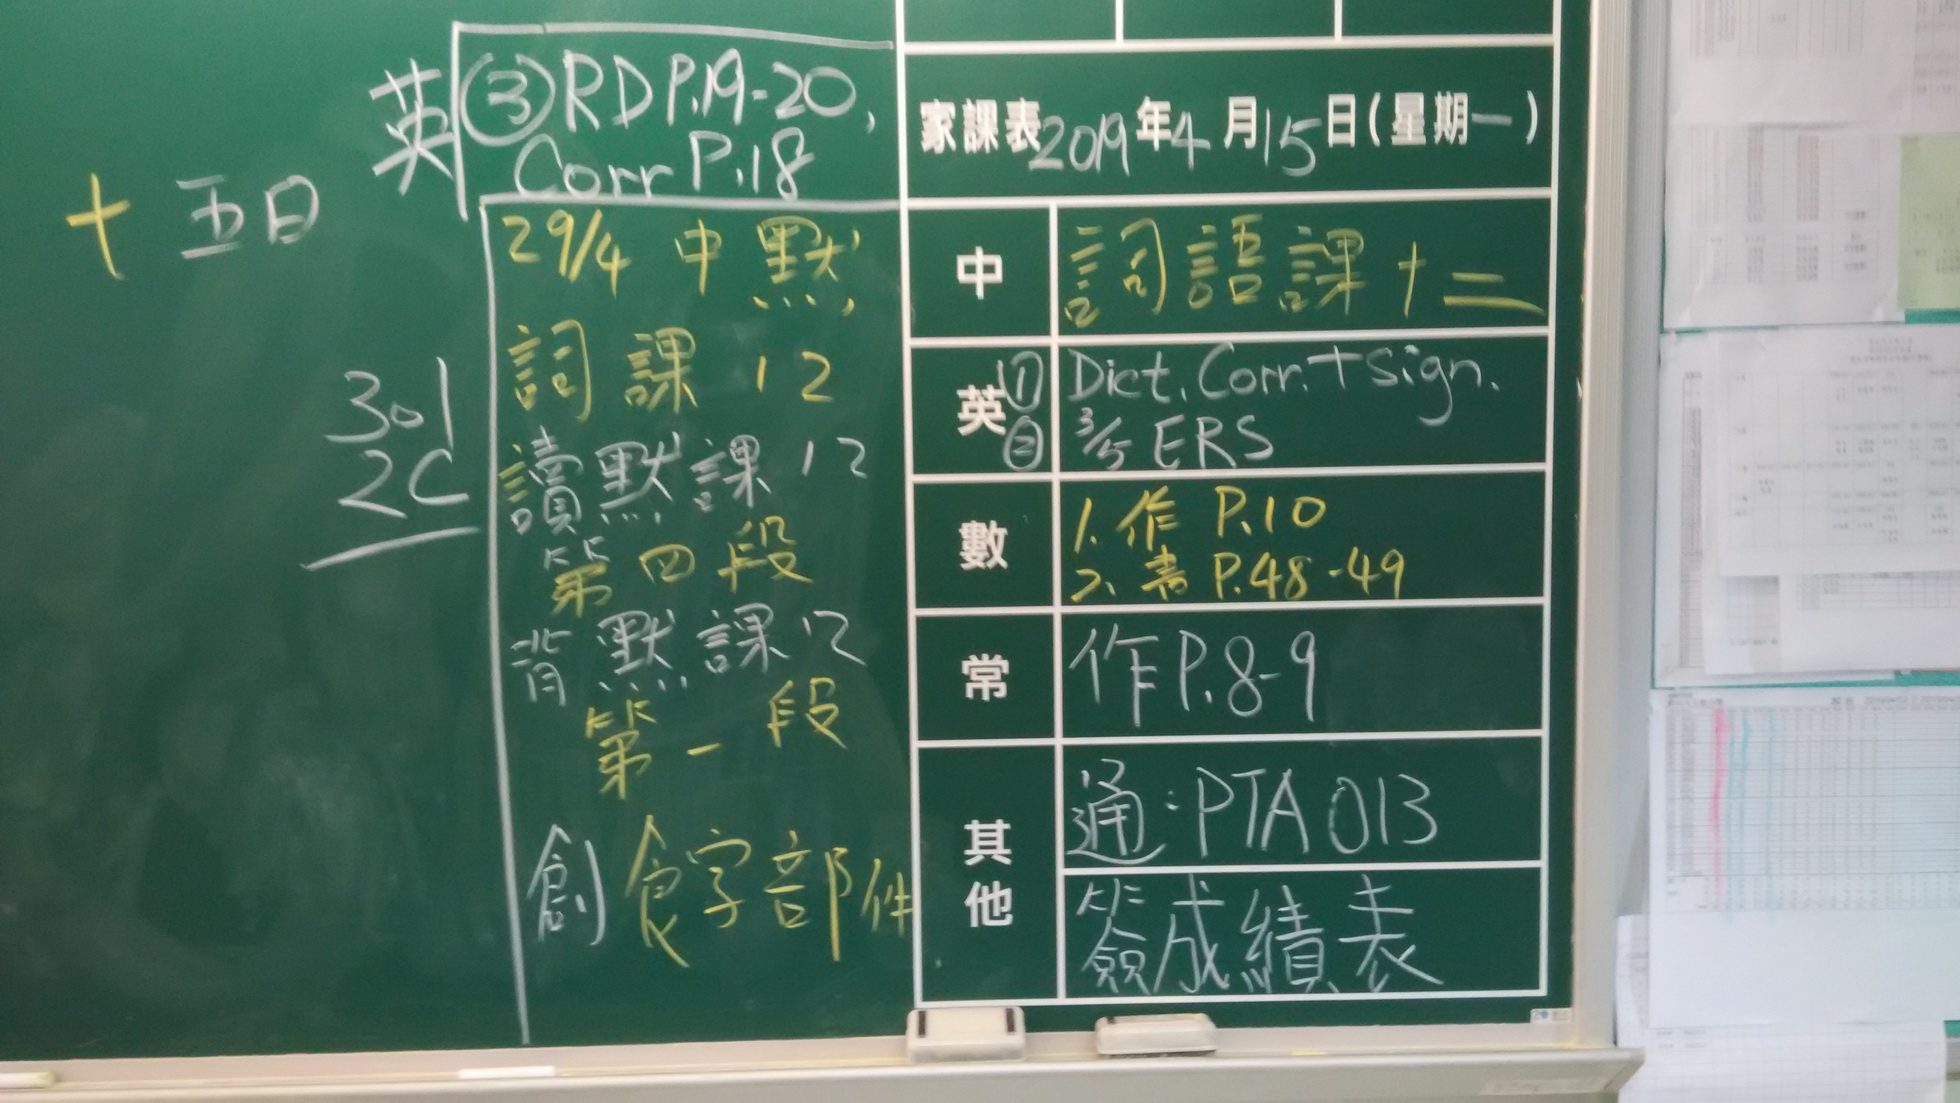 英 ③ RD P.19-20,
Corr P.18
十五日
29/4 中默
詞課12
讀默課12
第四段
背默課12
第一段
創食字部件
301
2C
家課表2019年4月15日(星期一)
中 詞語課十二
英 ① Dict. Corr. + sign.
② 3/5 ERS
數 1. 作 P.10
2. 書 P.48-49
常 作P.8-9
其他 通:PTA 013
簽成績表